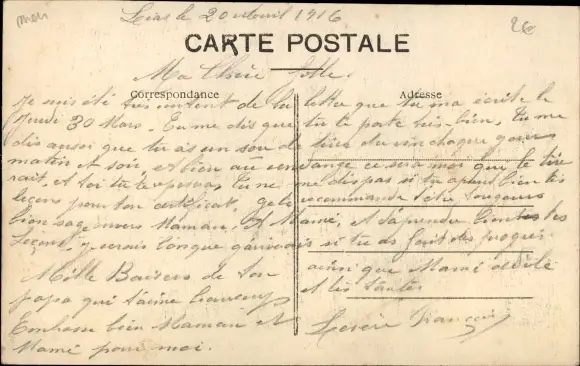 le 20 Avril 1916
26
CARTE POSTALE
Ma Chère
Correspondance
Adresse
Je suis été très content de la lettre que tu ma écrite le
Jeudi 30 Mars. Tu me dis que tu le porte très bien, Tu me
dis aussi que tu as un sou de tirer du vin chaque
matin et soir, et bien au vendange ce sera moi que le tire
rait, et toi tu te Tu ne me dis pas si tu apprend bien tes
leçons pour ton certificat, je te recommande d'être toujours
bien sage envers Maman, et Mamé, et d'apprendre bien tes
Leçons, je verais lorsque si tu as fait des progrès
Mille Baisers de ton
papa qui t'aime beaucoup
Embrasse bien Maman et
Mamé pour moi.
ainsi que Mamé
et les tantes
François